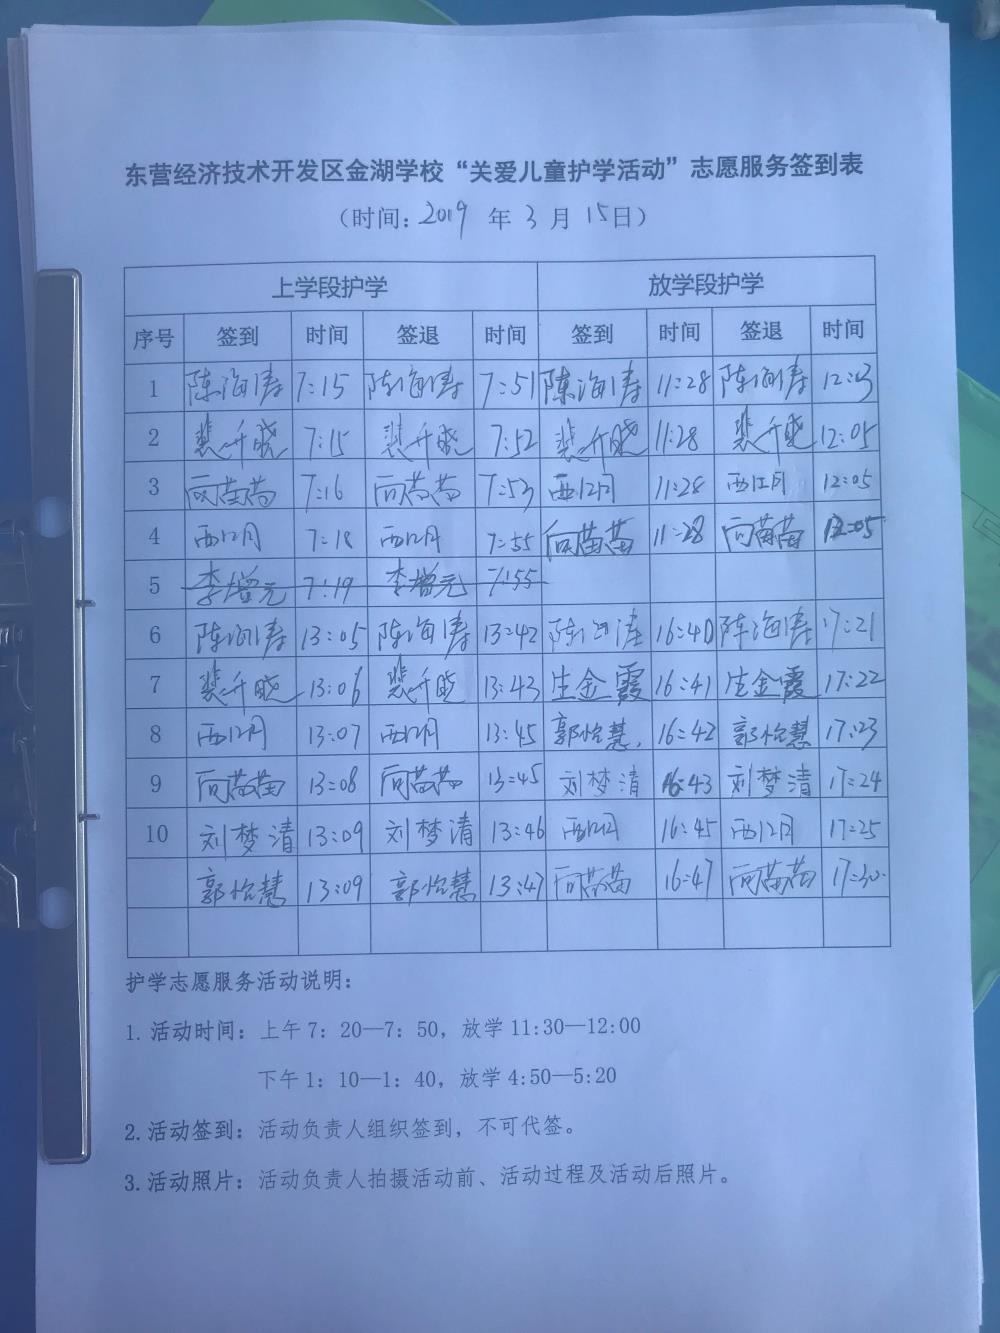 东营经济技术开发区金湖学校“关爱儿童护学活动”志愿服务签到表
（时间：2019 年 3 月 15日）
上学段护学 放学段护学
序号 签到 时间 签退 时间 签到 时间 签退 时间
1 陈海涛 7:15 陈海涛 7:51 陈海涛 11:28 陈海涛
2 裴千晓 7:15 裴千晓 7:52 裴千晓 11:28 裴千晓 12:05
3 向苗苗 7:16 向苗苗 7:53 西江月 11:28 西江月 12:05
4 西江月 7:18 西江月 7:55 向苗苗 11:28 向苗苗 12:05
5 李增元 7:19 李增元 7:55
6 陈海涛 13:05 陈海涛 13:42 陈海涛 16:40 陈海涛 17:21
7 裴千晓 13:06 裴千晓 13:43 生金霞 16:41 生金霞 17:22
8 西江月 13:07 西江月 13:45 郭怡慧 16:42 郭怡慧 17:23
9 向苗苗 13:08 向苗苗 13:45 刘梦清 16:43 刘梦清 17:24
10 刘梦清 13:09 刘梦清 13:46 西江月 16:45 西江月 17:25
郭怡慧 13:09 郭怡慧 13:47 向苗苗 16:47 向苗苗 17:30
护学志愿服务活动说明：
1.活动时间：上午 7：20—7：50，放学 11:30—12:00
下午 1：10—1：40，放学 4:50—5:20
2.活动签到：活动负责人组织签到，不可代签。
3.活动照片：活动负责人拍摄活动前、活动过程及活动后照片。